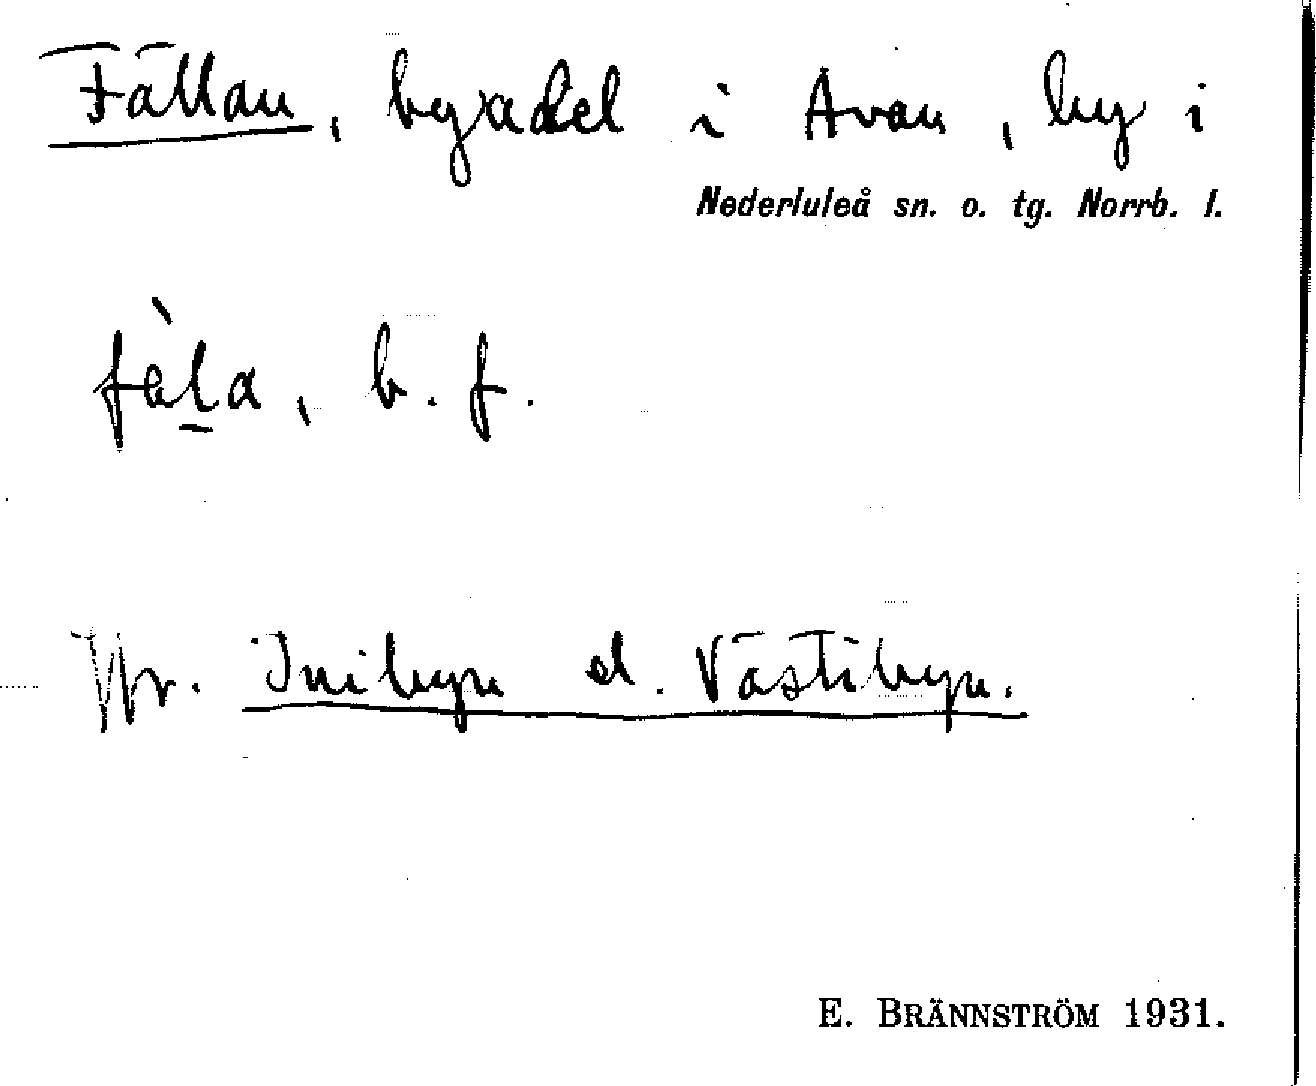 Fällan, byadel i Avan, by i
Nederluleå sn. o. tg. Norrb. l.
fèl̠a, b. f.
Jfr. Inibyn el. Västibyn.
E. BRÄNNSTRÖM 1931.